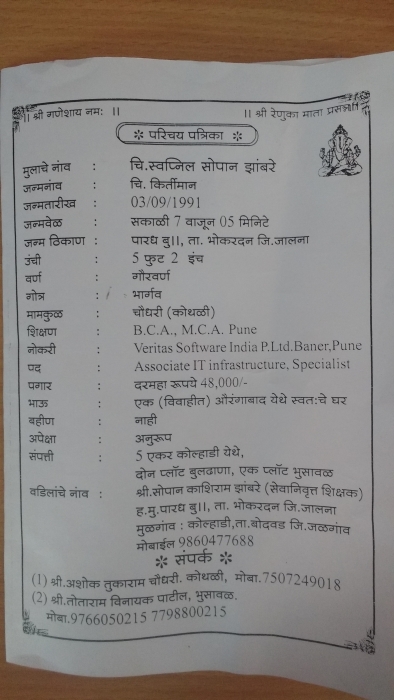 ।। श्री गणेशाय नमः ।।
।। श्री रेणुका माता प्रसन्न।।
❊ परिचय पत्रिका ❊
मुलाचे नांव : चि.स्वप्निल सोपान झांबरे
जन्मनांव : चि. किर्तीमान
जन्मतारीख : 03/09/1991
जन्मवेळ : सकाळी 7 वाजून 05 मिनिटे
जन्म ठिकाण : पारध बु।।, ता. भोकरदन जि.जालना
उंची : 5 फुट 2 इंच
वर्ण : गौरवर्ण
गोत्र : भार्गव
मामकुळ : चौधरी (कोथळी)
शिक्षण : B.C.A., M.C.A. Pune
नोकरी : Veritas Software India P.Ltd.Baner,Pune
पद : Associate IT infrastructure, Specialist
पगार : दरमहा रूपये 48,000/-
भाऊ : एक (विवाहीत) औरंगाबाद येथे स्वतःचे घर
बहीण : नाही
अपेक्षा : अनुरूप
संपत्ती : 5 एकर कोल्हाडी येथे,
दोन प्लॉट बुलढाणा, एक प्लॉट भुसावळ
वडिलांचे नांव : श्री.सोपान काशिराम झांबरे (सेवानिवृत्त शिक्षक)
ह.मु.पारध बु।।, ता. भोकरदन जि.जालना
मुळगाव : कोल्हाडी,ता.बोदवड जि.जळगांव
मोबाईल 9860477688
❊ संपर्क ❊
(1) श्री.अशोक तुकाराम चौधरी. कोथळी, मोबा.7507249018
(2) श्री.तोताराम विनायक पाटील, भुसावळ.
मोबा.9766050215 7798800215